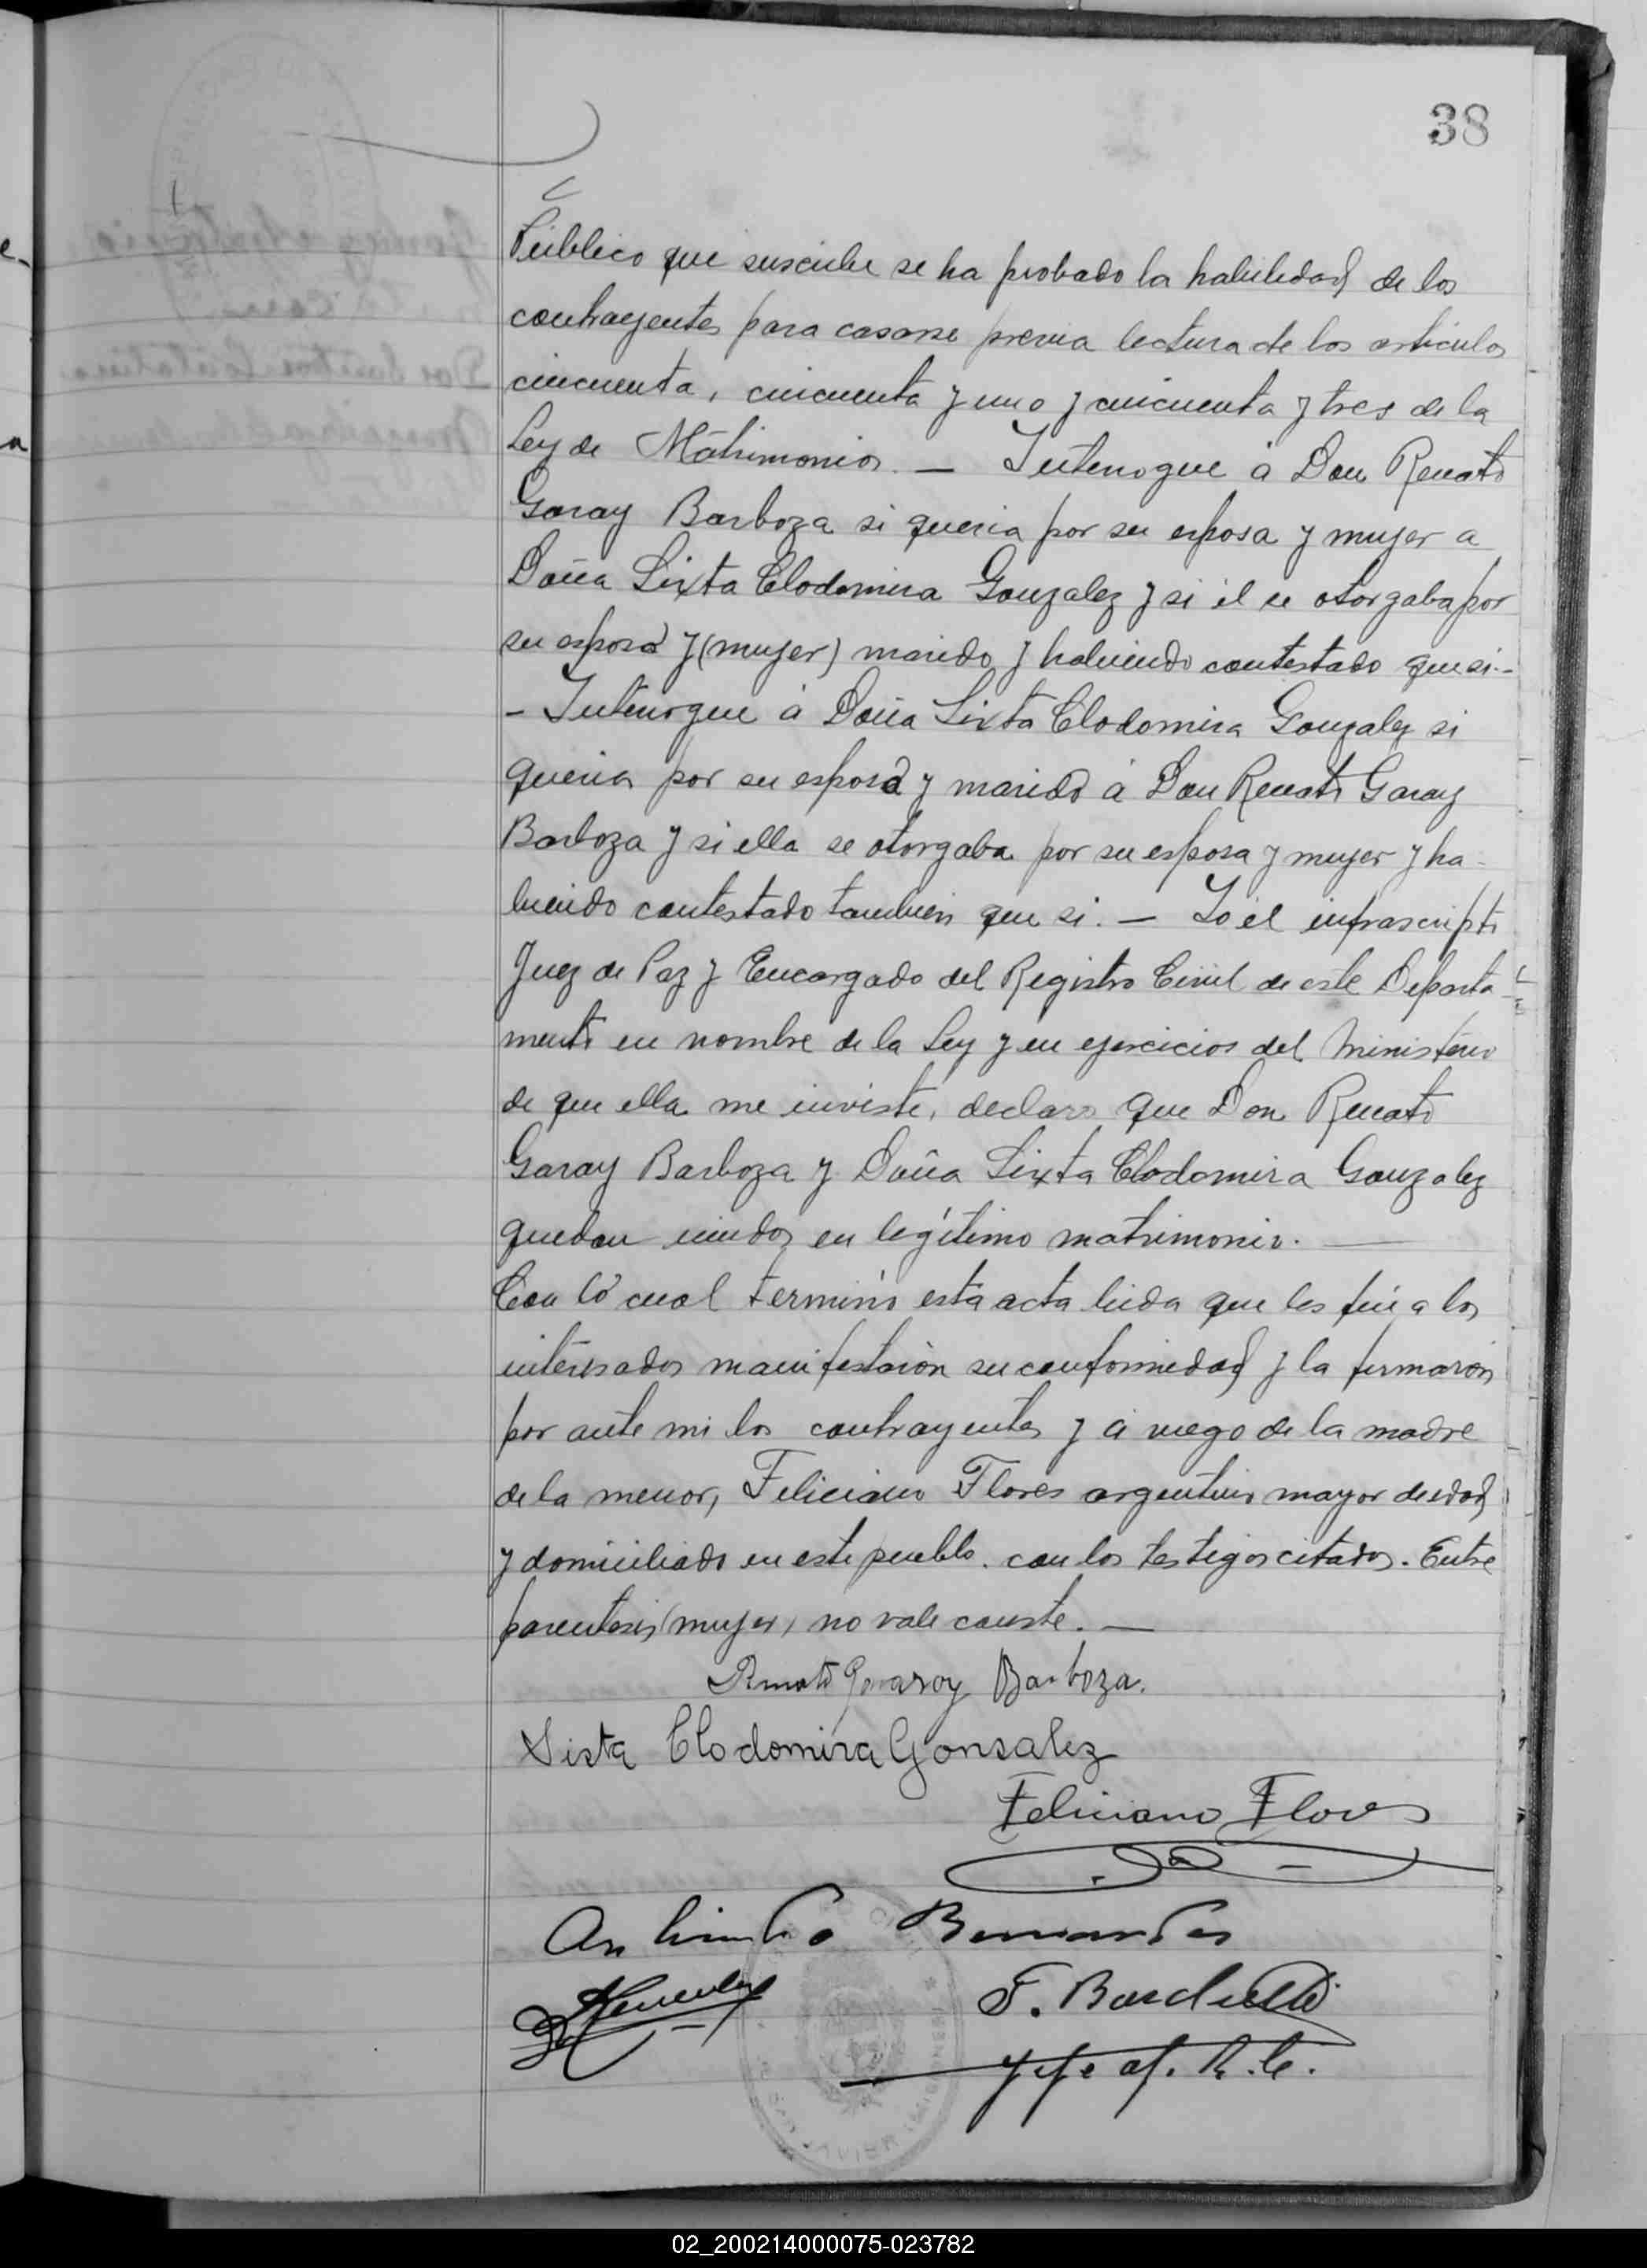 38
Público que suscribe se ha probado la habilidad de los
contrayentes para casarse previa lectura de los articulos
cincuenta, cincuenta y uno y cincuenta y tres de la
Ley de Matrimonio. — Interrogue á Don Renato
Garay Barboza si queria por su esposa y mujer a
Doña Sixta Clodomira Gonzalez y si él se otorgaba por
su esposo y (mujer) marido y habiendo contestado que si.-
- Interrogue á Doña Sixta Clodomira Gonzalez si
queria por su esposo y marido á Don Renato Garay
Barboza y si ella se otorgaba por su esposa y mujer y ha-
biendo contestado tambien que si. — Yo él infrascripto
Juez de Paz y Encargado del Registro Civil de este Departa-
mento en nombre de la Ley y en ejercicios del Ministerio
de que ella me inviste, declaro que Don Renato
Garay Barboza y Doña Sixta Clodomira Gonzalez
quedan unidos en legítimo matrimonio. —
Con ló cual terminó esta acta leida que les fué a los
interesados manifestarón su conformidad y la firmarón
por ante mi los contrayentes y á ruego de la madre
de la menor, Feliciano Flores argentino mayor de edad
y domiciliado en este pueblo. con los testigos citados. Entre
parentesis (mujer) no vale conste. —
Renato Garay Barboza.
Sista Clodomira Gonsalez
Feliciano Flores
02_200214000075-023782